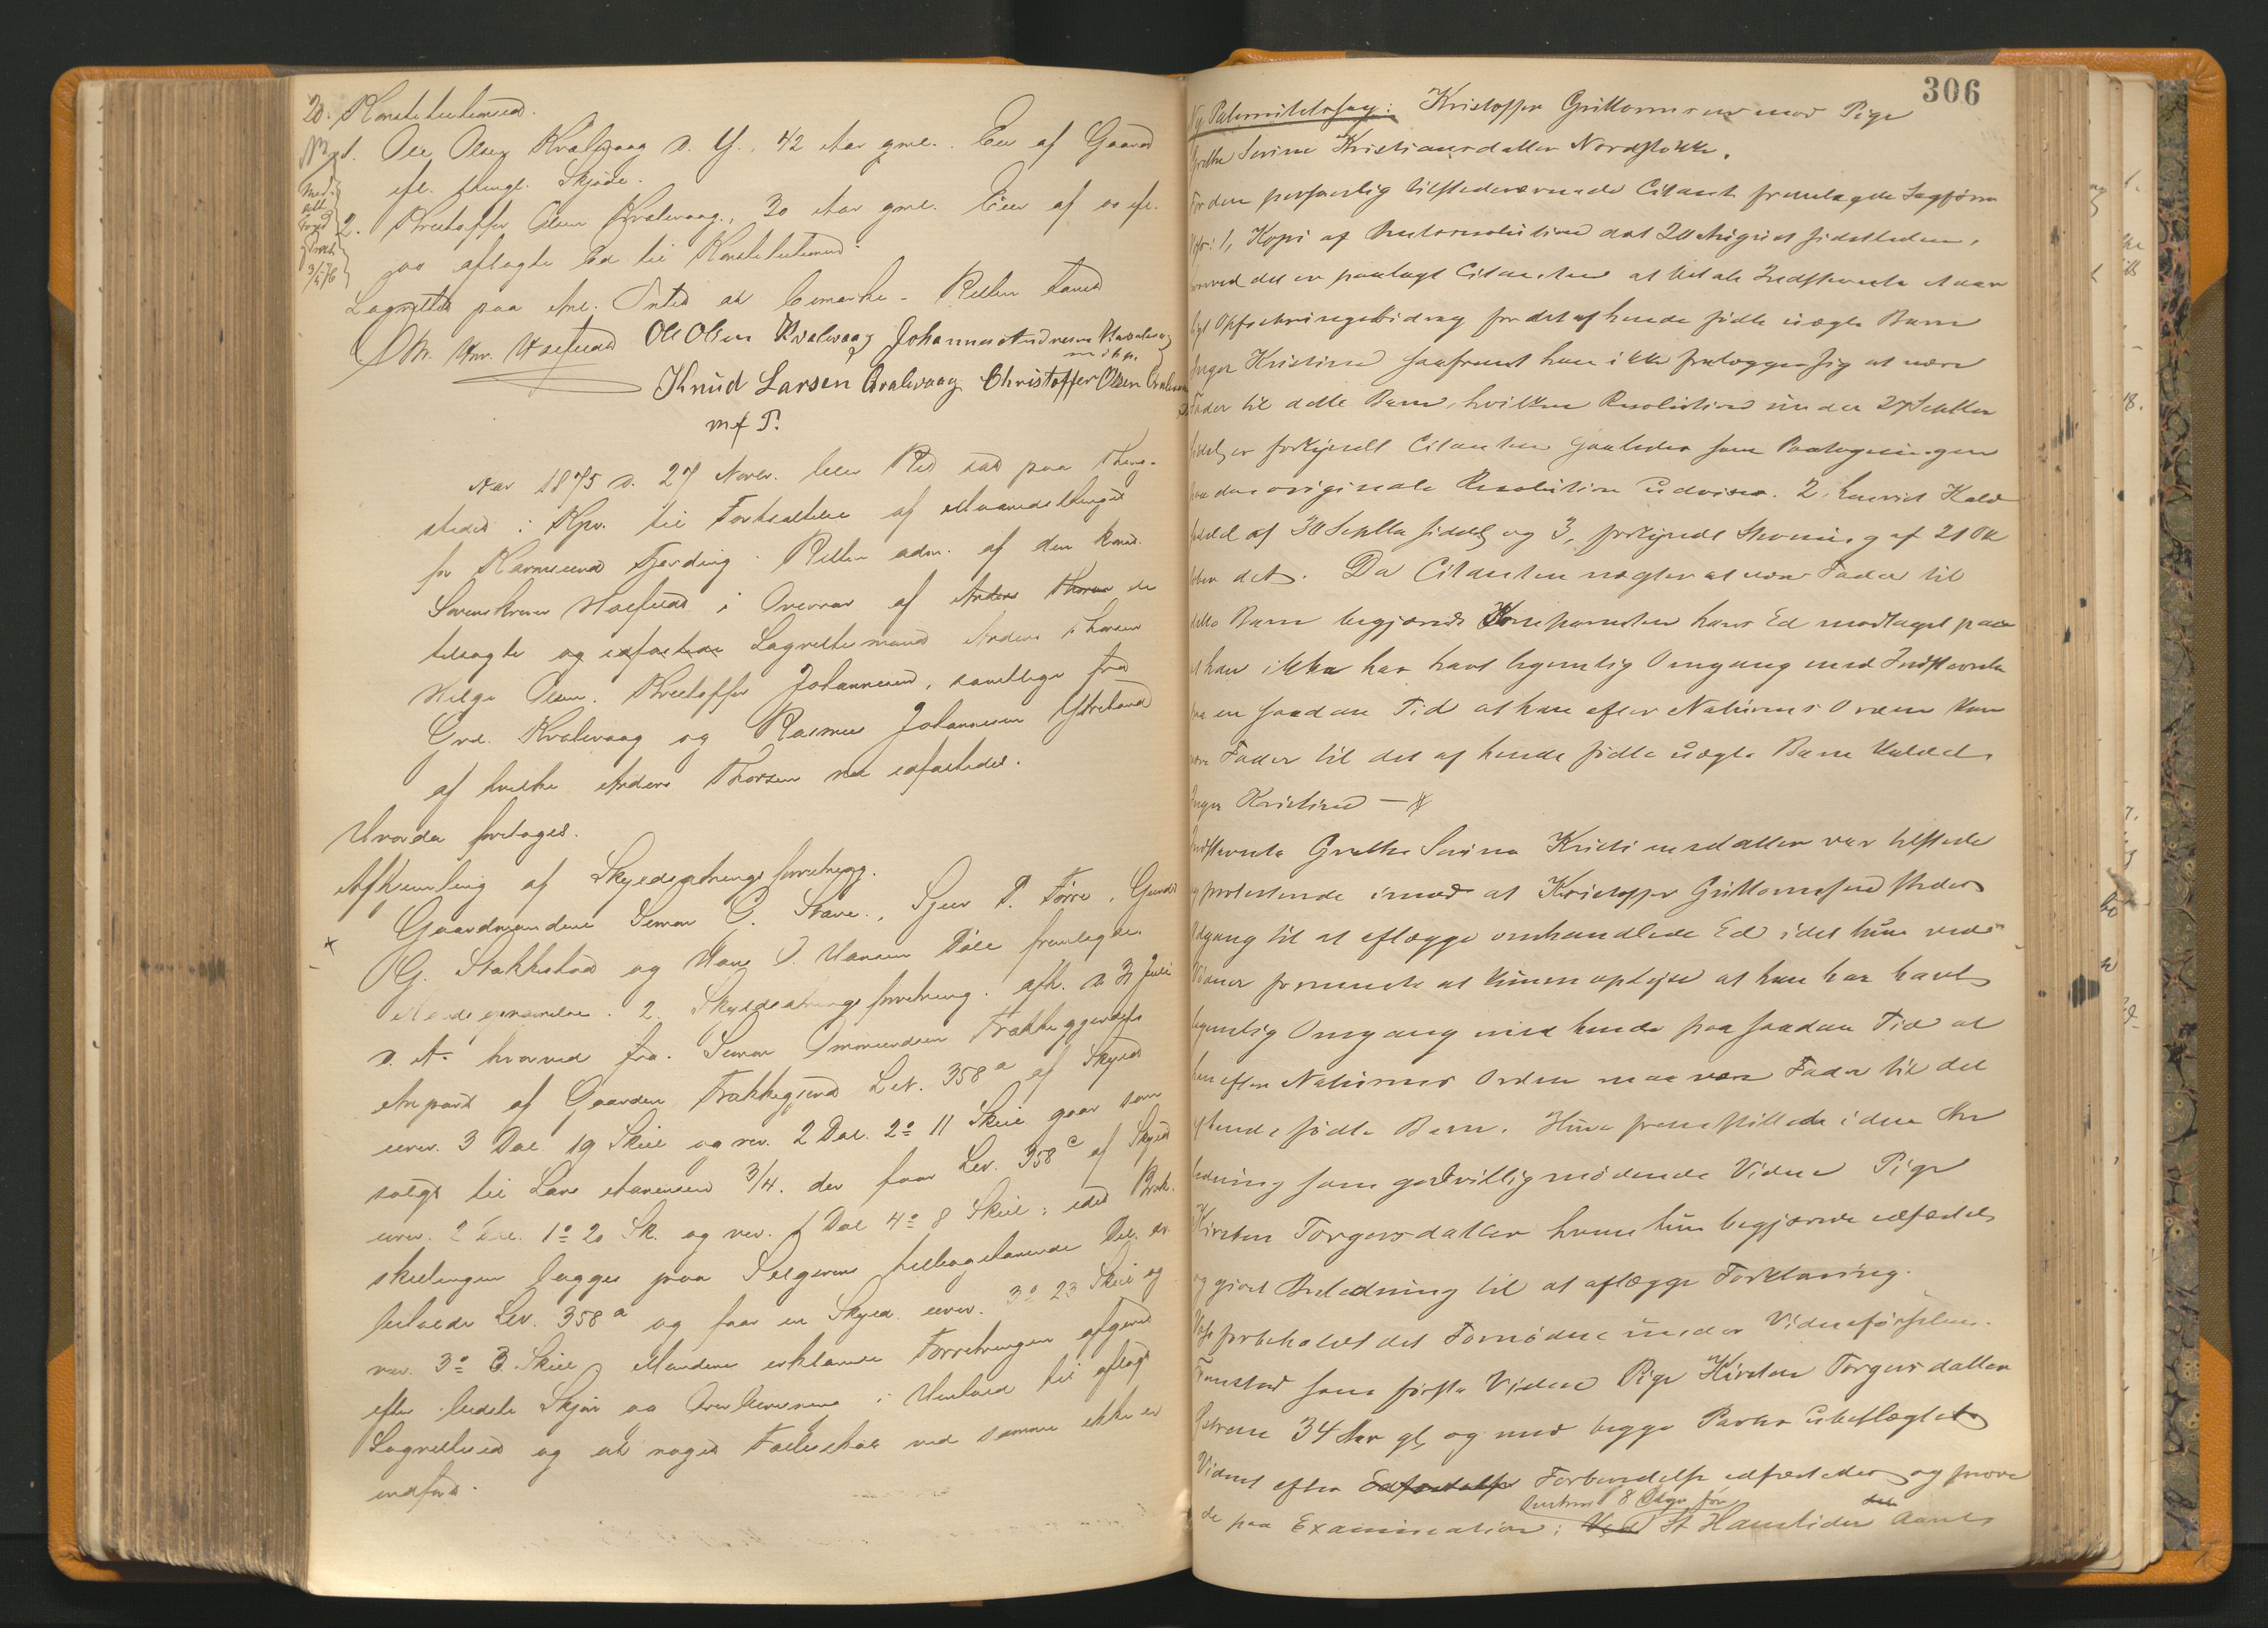 20. Konstitutionsed.
1. Ole Olsen Kvalevaag d. Y., 42 Aar gml. Eier af Gaard
efl. thingl. Skjøde.
2. Kristoffer Olsen Kvalevaag, 30 Aar gml. Eier af
aflagte Ed til Konstitutionen.
Lagrettet paa Anl. Intet at bemærke. Retten hævet
Ole Olsen Kvalevaag Johannes Andreasen Kvalevaag
m. i. p.
Knud Larsen Qvalevaag Christoffer Olsen Qvalevaag
m f P.
Aar 1875 d. 27 Novbr. blev Ret sat paa Thing-
stedet i Kpv. til Fortsættelse af Maanedsthinget
for Karmsund Fjerding. Retten adm. af den konst.
Sorenskriver i Overvær af Anders Thorsen de
tilsagte og edfæstede Lagrettesmænd Anders Thorsen
Helge Olsen, Kristoffer Johannesen, samtlige fra
Grd. Kvalevaag og Rasmus Johannesen Ytreland
af hvilke Anders Thorsen nu edfæstedes.
Hvorda foretages.
Afhjemling af Skyldsætningsforretngg.
Gaardmændene Simon G. Stave, Sjur P. Førre, Gunder
G. Stakkestad og Hans J. Hansen Døle fremlagde
2. Skyldsætningsforretning afh. d. 31 Juli
d. A. hvorved fra Simon Ommundsen Frakkegjerdets
Anpart af Gaarden Frakkegjerd Lnr. 358a af Skyld
urev. 3 Dal. 19 Skill og rev. 2 Dal. 2 o 11 Skill gaar som
solgt til Lars Aanensen 3/4. der faar Lnr. 358c af Skyld
urev. 2 Dal. 1 o 20 Sk. og rev. 1 Dal 4 o 8 Skill, idet Brøk-
skillingen lægges paa Sælgerens tilbagehavende Del. der
beholder Lnr. 358a og faar en Skyld urev. 3 o 23 Skill og
rev. 3 o 3 Skill. Mændene erklærede Forretningen afgivet
efter bedste Skjøn og Overbevisning i Henhold til aflagt
Lagrettesed og at noget Fællesskab ved samme ikke er
indført.
306
Ny Paternitetssag: Kristoffer Guttormsen mod Pige
Grethe Serine Kristiansdatter Nordstokke.
For den personlig tilstedeværende Citant fremlagde Sagfører
1, Kopi af Amtsresolution dat 20 August sidstleden,
hvorved det er paalagt Citanten at betale Indstevnte et aar-
ligt Opfostringsbidrag for det af hende fødte uægte Barn
Inger Kristine saafremt han ikke fralægger sig at være
Fader til dette Barn, hvilken Resolution under 27 Septbr
sidstl er forkyndt Citanten saaledes som Paategningen
paa den originale Resolution udviser. 2, henvist Kald-
seddel af 30 Septbr sidstl og 3, forkyndt Stevning af 21 Ok-
tober det. Da Citanten nægter at være Fader til
dette Barn begjærede Komparenten hans Ed modtaget paa
at han ikke har havt legemlig Omgang med Indstevnte
paa en saadan Tid at han efter Naturens Orden kan
være Fader til det af hende fødte uægte Barn kaldet
Inger Kristine —
Indstevnte Grethe Serine Kristiansdatter var tilstede
og protesterede imod at Kristoffer Guttormsen stedes
Adgang til at aflægge omhandlede Ed idet hun ved
Vidner formente at kunne oplyse at han har havt
legemlig Omgang med hende paa saadan Tid at
han efter Naturens Orden maa være Fader til det
af hende fødte Barn. Hun fremstillede i den An-
ledning som godvillig mødende Vidne Pige
Kirsten Torgersdatter hvem hun begjærede edfæstet
og givet Anledning til at aflægge Forklaring.
forbeholdt det Fornødne under Vidneførselen.
Fremstod som første Vidne Pige Kirsten Torgersdatter
34 Aar gl, og med begge Parter ubeslægtet
Vidnet efter Edfæstelse Forberedelse edfæstedes og svare-
de paa Examination: Ved omtrent 8 Dage før St Hanstider dette Aaret